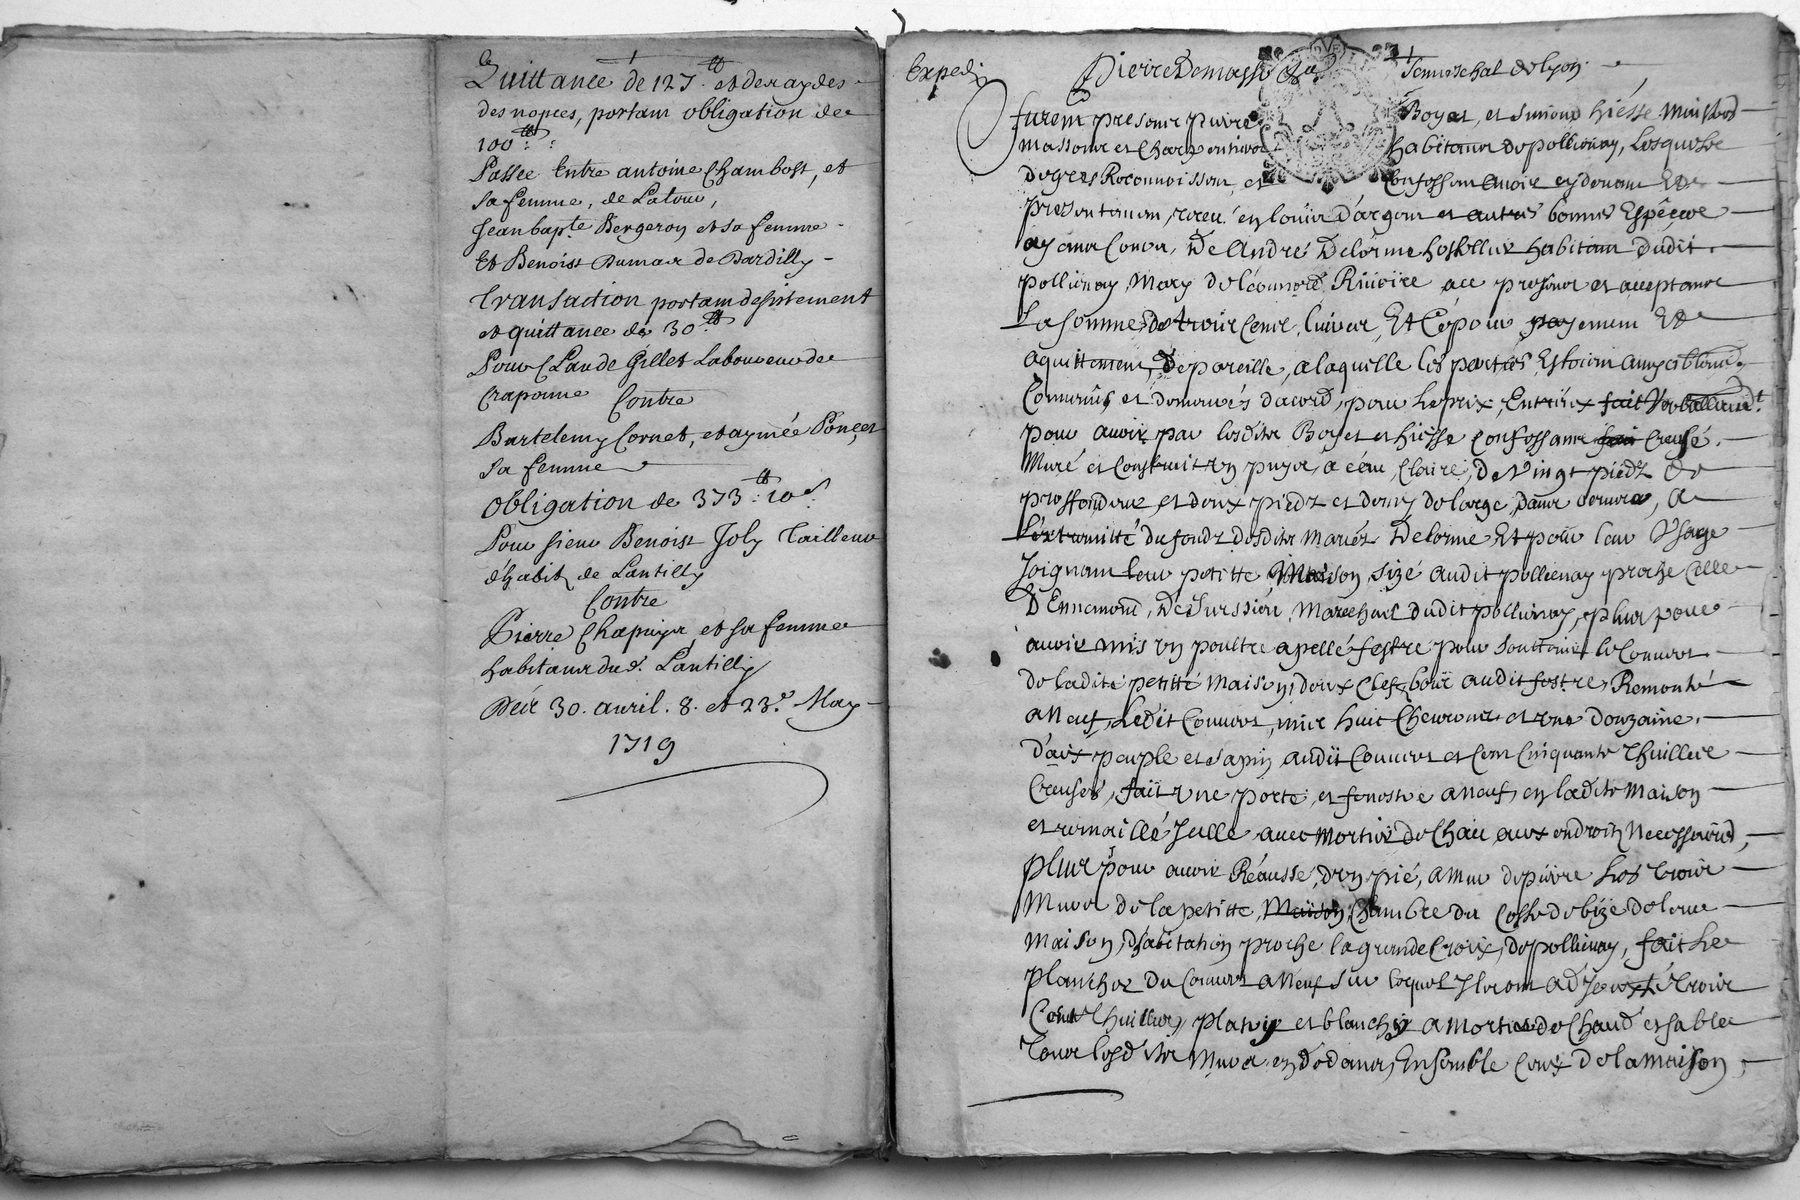 Quittance de 127.tt et de raydes
des nopces, portant obligation de
100.tt :
Passée Entre antoine Chambost, et
sa femme, de Latour,
Jean bapt.e Bergeron et sa femme
Et Benoist Dumas de Dardilly
Transaction portant desistement
et quittance de 30.tt
Pour Claude Gillet Laboureur de
Craponne Contre
Bartelemy Cornet, et aymée Poncet
sa femme
obligation de 373.tt 10.s
Pour sieur Benoist Joly Tailleur
d'habit de Lantilly
Contre
Pierre Chapuys et sa femme
habitans dud. Lantilly
Des 30. avril. 8. et 23.e May
1719
Exped.
Pierre Demasso Senneschal de Lyon
furent presents pierre Boyet, et Simond hiesse Maistres
massons et Charpentiers habitans de pollienay, Lesquels de
de gres Reconnoissent et Confessent avoir cy devant Et
presentement, receu en louis d'argent et autres bonnes Espéces
ayant Cours, De André Delorme hostellier habitant dudit
pollienay, Mary de Léonnord Rivoire ace presente et acceptante
La somme de trois Cents livres, Et C'é pour payement Et
aquittement, de pareille, a laquelle les parties Estoient amyablement
Convenûs et demeurés d'acord, pour le prix, Entr'eux fait Verballement
pour avoir par lesdits Boyet et hiesse Confessants fait Creusé
Muré et Construit un puys, a eau Claire, de vingt piedz de
proffondeur et deux piedz et demy de large, dans oeuvre, a
L'extremitté du fondz desdits Mariés Delorme Et pour leur Usage
Joignant leur petitte Maison, sizé audit pollienay proche Celle
D'Ennemond, De Marechal dudit pollienay, plus pour
avoir mis un poultre apellé festre pour soutenir le Couvert
de ladite petitté Maison, deux Clefz audit festre, Remonté
a Neuf, Ledit Couvert, mis huit Chevrons et une Douzaine
d'aix peuple et sapin audit Couvert et Cent Cinquante Thuilles
Creuses, fait une porte, et fenestre a Neuf en ladite Maison
et remaillé Jcelle avec Mortier de Chau aux endroits Necessaires,
Plus pour avoir Réausse, d'un pié, a Mur de pierre Les Trois
Murs de la petitte, Maison, Chambre du Costé de bize de leur
Maison, d'habitation proche la grande Croix, de pollienay, fait Le
plancher du Couvert a Neuf sur lequel Jls ont adJouxté Trois
Cents Thuilles, platry et blanchy a Mortier de Chaud et sable
Tous lesdits Murs en dedans, Ensemble Ceux de la Maison,